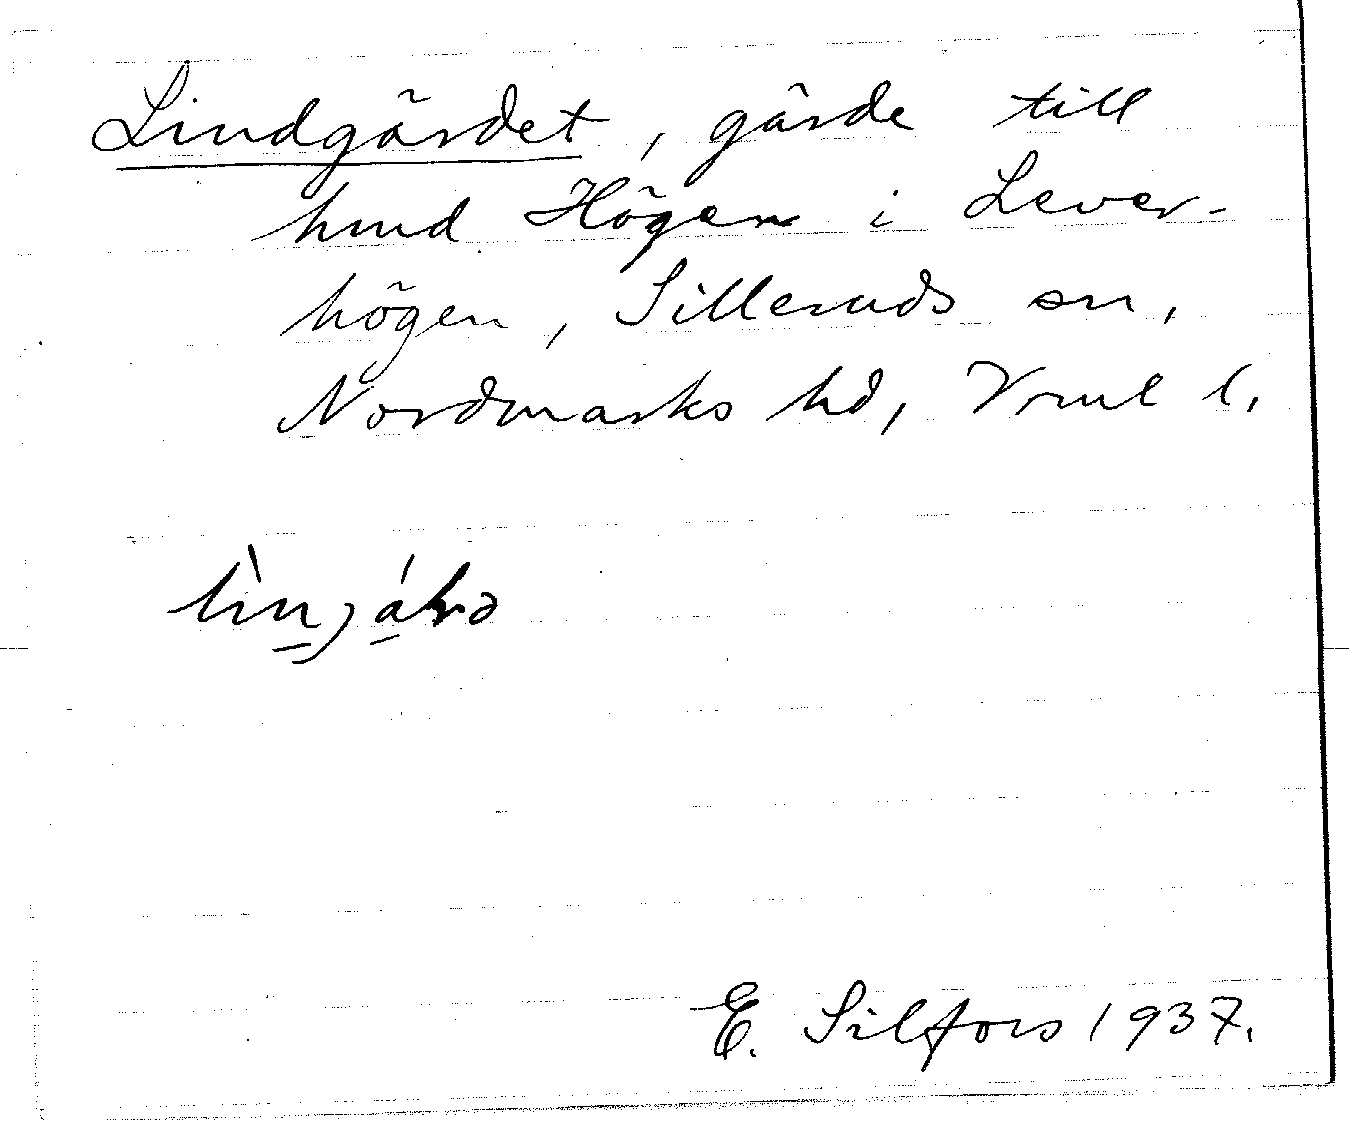 Lindgärdet, gärde till
hmd Högen i Lever-
högen, Silleruds sn,
Nordmarks hd, Vrml l.
E. Silfors 1937.